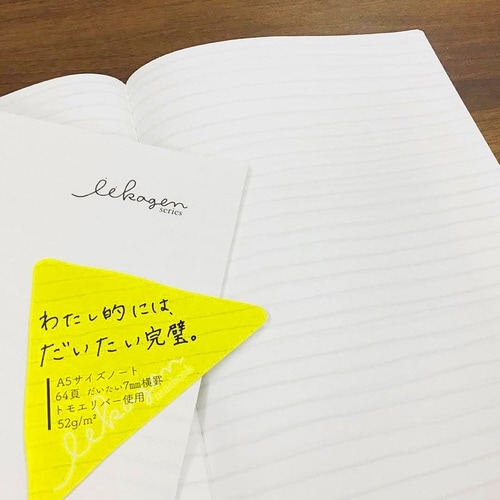 iikagen
series
わたし的には、
だいたい完璧。
A5サイズノート
64頁 だいたい7mm横罫
トモエリバー使用
52g/m²
iikagen